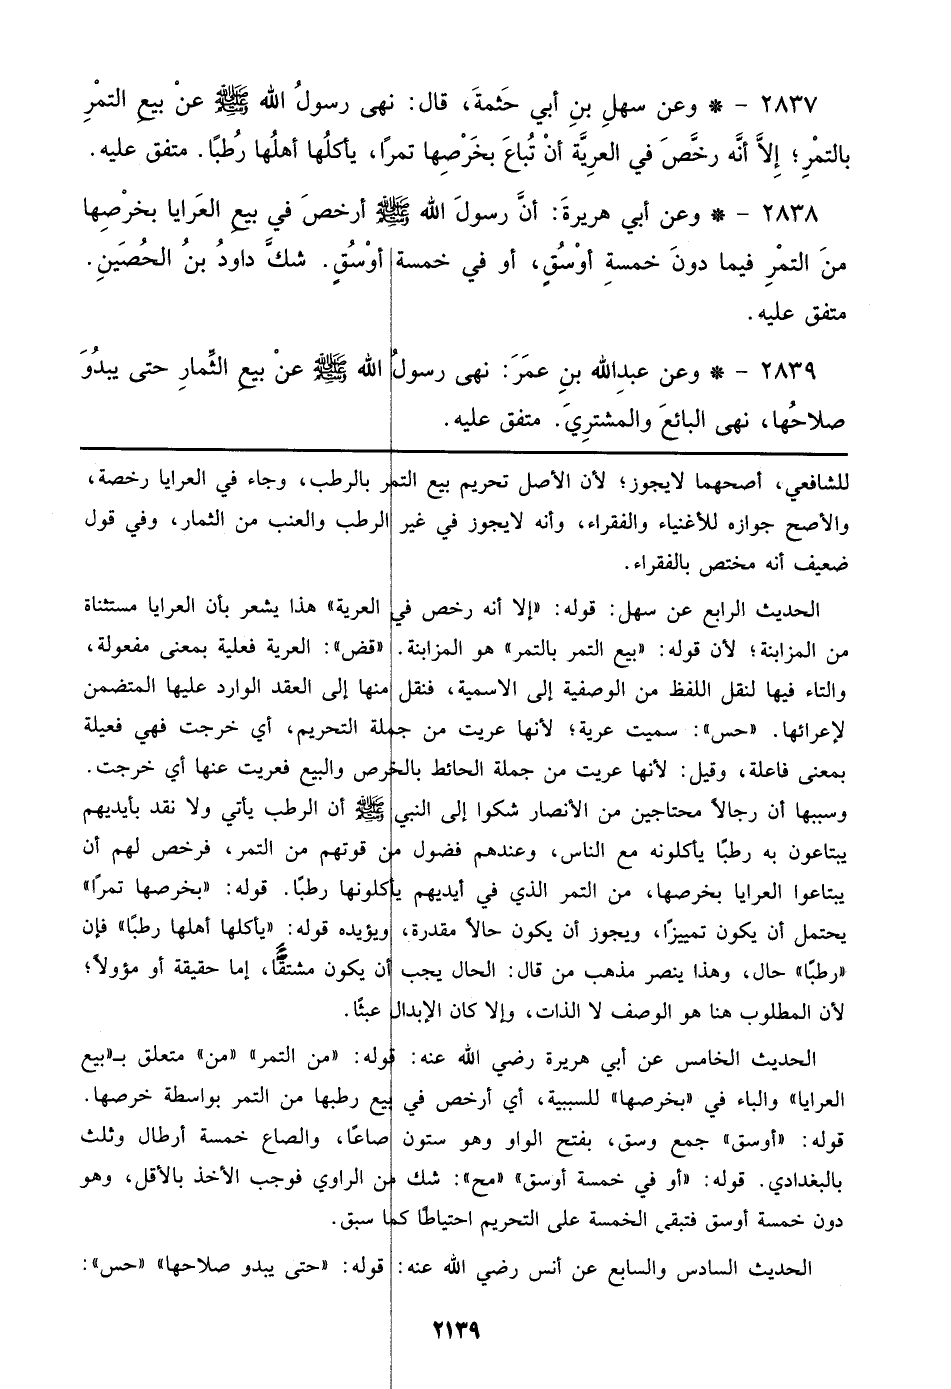 ٢٨٣٧ - * وعن سهلِ بنِ أبي حَثمةَ، قال: نهى رسولُ الله ﷺ عنْ بيعِ التمْرِ
بالتمْرِ؛ إِلاَّ أنَّه رخَّصَ في العريَّة أنْ تُباعَ بخَرْصِها تمراً، يأكلُها أهلُها رُطبًا. متفق عليه.
٢٨٣٨ - * وعن أبي هريرةَ: أنَّ رسولَ الله ﷺ أرخصَ في بيعِ العَرايا بخرْصِها
منَ التمْرِ فيما دونَ خمسةِ أوْسُقٍ، أو في خمسة أوْسُقٍ. شكَّ داودُ بنُ الحُصَينِ.
متفق عليه.
٢٨٣٩ - * وعن عبدِالله بنِ عمَرَ: نهى رسولُ الله ﷺ عنْ بيعِ الثِّمارِ حتى يبدُوَ
صلاحُها، نهى البائعَ والمشتريَ. متفق عليه.
للشافعي، أصحهما لايجوز؛ لأن الأصل تحريم بيع التمر بالرطب، وجاء في العرايا رخصة،
والأصح جوازه للأغنياء والفقراء، وأنه لايجوز في غير الرطب والعنب من الثمار، وفي قول
ضعيف أنه مختص بالفقراء.
الحديث الرابع عن سهل: قوله: «إلا أنه رخص في العرية» هذا يشعر بأن العرايا مستثناة
من المزابنة؛ لأن قوله: «بيع التمر بالتمر» هو المزابنة. «قض»: العرية فعلية بمعنى مفعولة،
والتاء فيها لنقل اللفظ من الوصفية إلى الاسمية، فنقل منها إلى العقد الوارد عليها المتضمن
لإعرائها. «حس»: سميت عرية؛ لأنها عريت من جملة التحريم، أي خرجت فهي فعيلة
بمعنى فاعلة، وقيل: لأنها عريت من جملة الحائط بالخرص والبيع فعريت عنها أي خرجت.
وسببها أن رجالاً محتاجين من الأنصار شكوا إلى النبي ﷺ أن الرطب يأتي ولا نقد بأيديهم
يبتاعون به رطبًا يأكلونه مع الناس، وعندهم فضول من قوتهم من التمر، فرخص لهم أن
يبتاعوا العرايا بخرصها، من التمر الذي في أيديهم يأكلونها رطبًا. قوله: «بخرصها تمرًا»
يحتمل أن يكون تمييزًا، ويجوز أن يكون حالاً مقدرة، ويؤيده قوله: «يأكلها أهلها رطبًا» فإن
«رطبًا» حال، وهذا ينصر مذهب من قال: الحال يجب أن يكون مشتقًّا، إما حقيقة أو مؤولاً؛
لأن المطلوب هنا هو الوصف لا الذات، وإلا كان الإبدال عبثًا.
الحديث الخامس عن أبي هريرة رضي الله عنه: قوله: «من التمر» «من» متعلق بـ«بيع
العرايا» والباء في «بخرصها» للسببية، أي أرخص في بيع رطبها من التمر بواسطة خرصها.
قوله: «أوسق» جمع وسق، بفتح الواو وهو ستون صاعًا، والصاع خمسة أرطال وثلث
بالبغدادي. قوله: «أو في خمسة أوسق» «مح»: شك من الراوي فوجب الأخذ بالأقل، وهو
دون خمسة أوسق فتبقى الخمسة على التحريم احتياطًا كما سبق.
الحديث السادس والسابع عن أنس رضي الله عنه: قوله: «حتى يبدو صلاحها» «حس»:
٢١٣٩